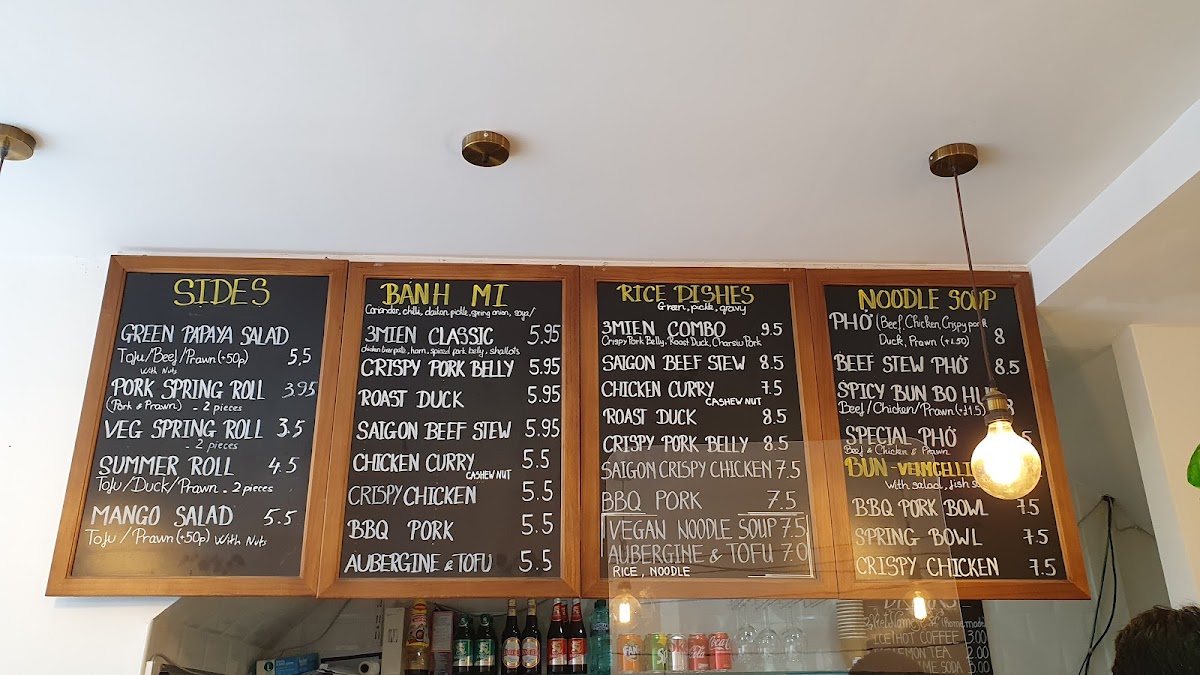 SIDES
GREEN PAPAYA SALAD
Tofu/Beef/Prawn (+50p) 5,5
With Nuts
PORK SPRING ROLL 3.95
(Pork & Prawn) - 2 pieces
VEG SPRING ROLL 3.5
- 2 pieces
SUMMER ROLL 4.5
Tofu/Duck/Prawn - 2 pieces
MANGO SALAD 5.5
Tofu/Prawn (+50p) With Nuts
BÁNH MÌ
Coriander, chilli, daikon pickle, spring onion, soya/
3MIEN CLASSIC 5.95
chicken liver pate, ham, spiced pork belly, shallots
CRISPY PORK BELLY 5.95
ROAST DUCK 5.95
SAIGON BEEF STEW 5.95
CHICKEN CURRY 5.5
CASHEW NUT
CRISPY CHICKEN 5.5
BBQ PORK 5.5
AUBERGINE & TOFU 5.5
RICE DISHES
Green, pickle, gravy
3MIEN COMBO 9.5
Crispy Pork Belly, Roast Duck, Charsiu Pork
SAIGON BEEF STEW 8.5
CHICKEN CURRY 7.5
CASHEW NUT
ROAST DUCK 8.5
CRISPY PORK BELLY 8.5
SAIGON CRISPY CHICKEN 7.5
BBQ PORK 7.5
VEGAN NOODLE SOUP 7.5
AUBERGINE & TOFU 7.0
RICE, NOODLE
NOODLE SOUP
PHỞ (Beef, Chicken, Crispy pork
Duck, Prawn (+1.50) 8
BEEF STEW PHỞ 8.5
SPICY BUN BO HU
Beef/Chicken/Prawn (+1.5)
SPECIAL PHỞ
Beef & Chicken & Prawn
BUN - VERMICELLI
With salad, fish
BBQ PORK BOWL 7.5
SPRING BOWL 7.5
CRISPY CHICKEN 7.5
Homemade
HOT COFFEE 3.00
LEMON TEA 2.00
LIME SODA